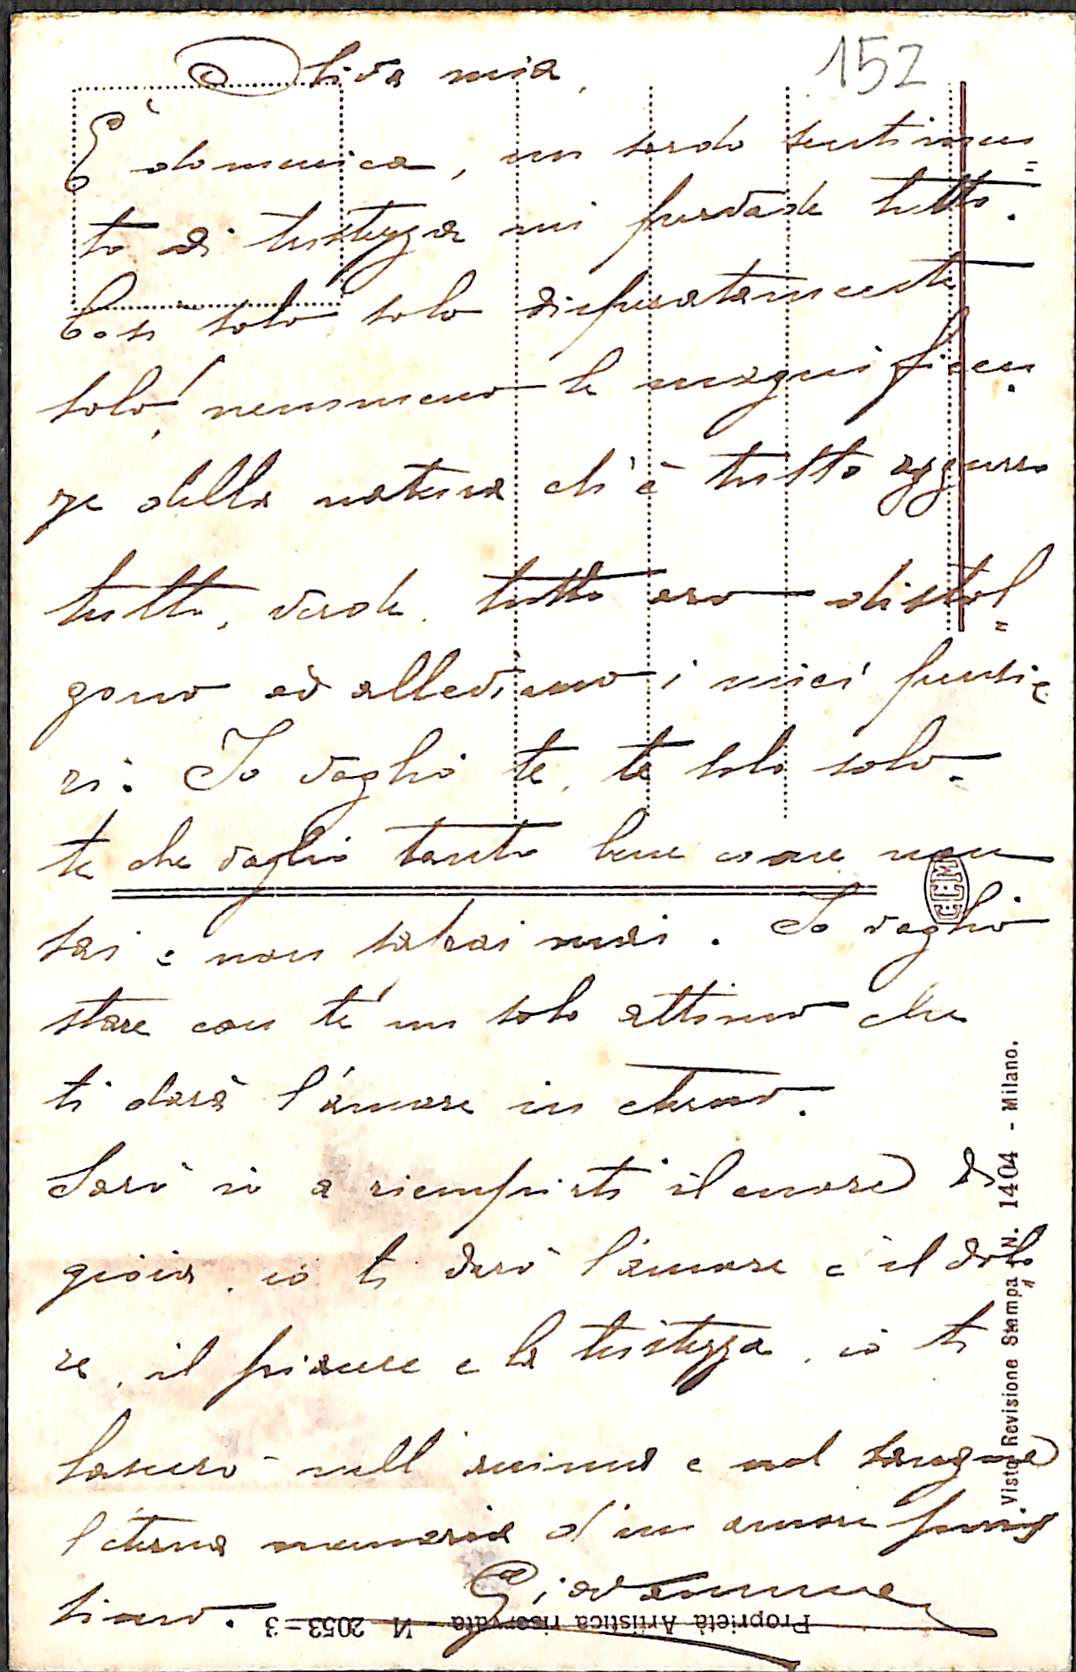 152
Oliva mia,
È domenica, un sordo sentimen=
to di tristezza mi pervade tutto.
Così solo solo disperatamente
solo! nemmeno le magnificen
ze della natura ch'è tutto azzurro
tutto, verde, tutto oro distol=
gono ed alleviano i miei pensie
ri. Io voglio te, te solo solo
te che voglio tanto bene come non
sai e non saprai mai. Io voglio
stare con te un solo attimo che
ti darà l'amore in eterno.
Sarò io a riempirti il cuore di
gioia, io ti darò l'amore e il dolo
re, il piacere e la tristezza, io ti
lascerò nell'anima e nel sangue
l'eterna memoria d'un amore
Giovanni
CCM
Visto Revisione Stampa N. 1404 - Milano.
Proprietà Artistica riservata - N 2053=3